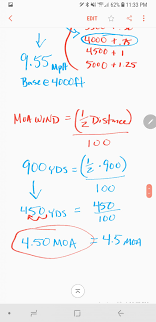 62% 11:33 PM
EDIT
4000 + .75
4500 + 1
5000 + 1.25
9.55 mph
Base @ 4000ft
MOA WIND = (1/2 Distance)
100
900 YDS = (1/2 · 900)
100
450 YDS = 450
100
4.50 MOA = 4.5 MOA